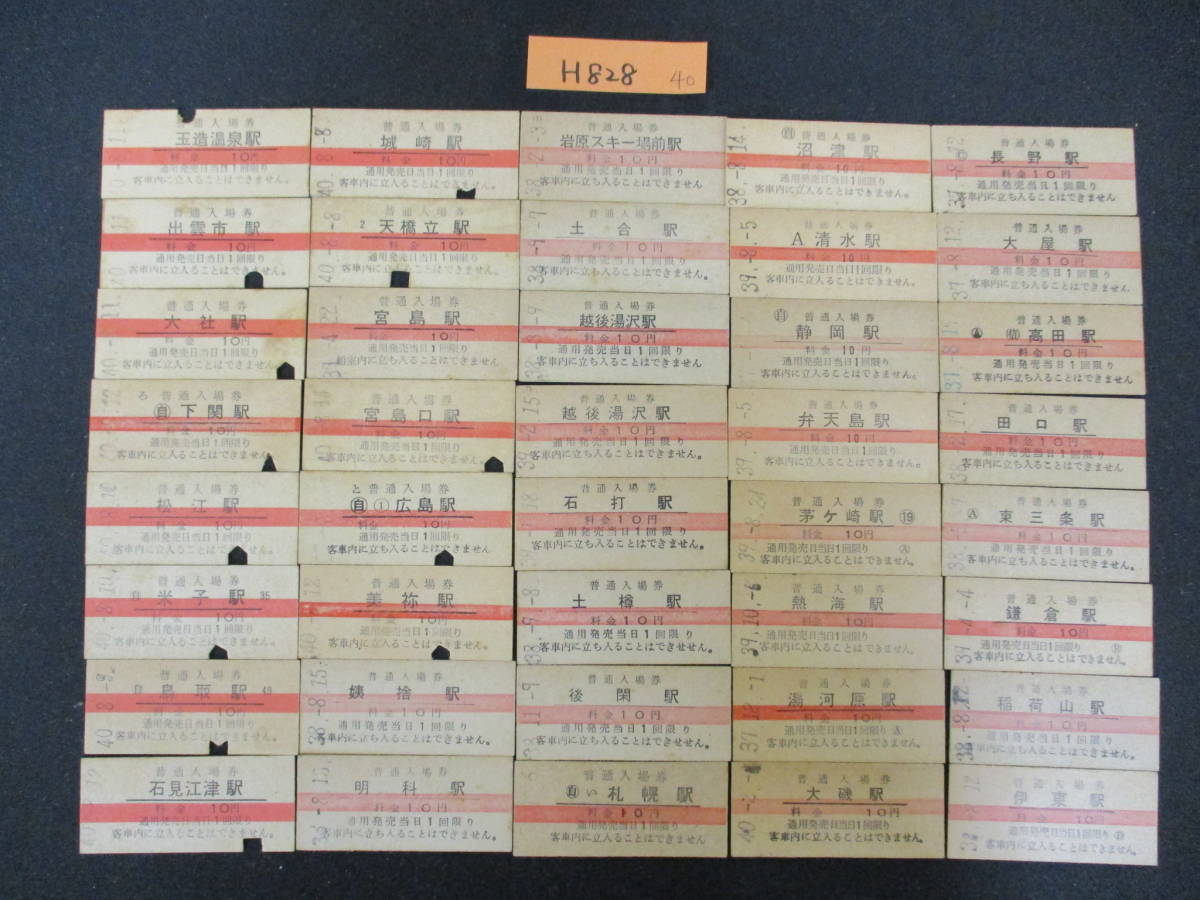 H828 40
普通入場券
玉造温泉駅
料金 10円
通用発売日当日1回限り
客車内に立入ることはできません。
普通入場券
出雲市駅
料金 10円
通用発売日当日1回限り
客車内に立入ることはできません。
普通入場券
大社駅
料金 10円
通用発売日当日1回限り
客車内に立入ることはできません。
ろ 普通入場券
自 下関駅
料金 10円
通用発売当日1回限り
客車内に立入ることはできません
普通入場券
松江駅
料金 10円
通用発売日当日1回限り
客車内に立入ることはできません。
普通入場券
自 米子駅 35
料金 10円
通用発売日当日1回限り
客車内に立入ることはできません。
普通入場券
自 鳥取駅 49
料金 10円
通用発売日当日1回限り
客車内に立入ることはできません。
普通入場券
石見江津駅
料金 10円
通用発売日当日1回限り
客車内に立入ることはできません。
40.-8.-8
普通入場券
城崎駅
料金 10円
通用発売日当日1回限り
客車内に立入ることはできません。
40.-8.-8
普通入場券
2 天橋立駅
料金 10円
通用発売日当日1回限り
客車内に立入ることはできません。
普通入場券
宮島駅
料金 10円
通用発売当日1回限り
船室内に立ち入ることはできません
普通入場券
宮島口駅
料金 10円
通用発売当日1回限り
客車内に立ち入ることはできません
と 普通入場券
自 1 広島駅
料金 10円
通用発売当日1回限り
客車内に立ち入ることはできません
普通入場券
美祢駅
料金 10円
通用発売当日1回限り
客車内に立ち入ることはできません
38.-8.15
普通入場券
姨捨駅
料金 10円
通用発売当日1回限り
客車内に立ち入ることはできません。
普通入場券
明科駅
料金 10円
通用発売当日1回限り
客車内に立ち入ることはできません。
普通入場券
岩原スキー場前駅
料金 10円
通用発売当日1回限り
客車内に立ち入ることはできません。
38.-9.-9
普通入場券
土合駅
料金 10円
通用発売当日1回限り
客車内に立ち入ることはできません。
普通入場券
越後湯沢駅
料金 10円
通用発売当日1回限り
客車内に立ち入ることはできません。
39.-2.15
普通入場券
越後湯沢駅
料金 10円
通用発売当日1回限り
客車内に立ち入ることはできません。
普通入場券
石打駅
料金 10円
通用発売当日1回限り
客車内に立ち入ることはできません。
普通入場券
土樽駅
料金 10円
通用発売当日1回限り
客車内に立ち入ることはできません。
普通入場券
後閑駅
料金 10円
通用発売当日1回限り
客車内に立ち入ることはできません。
普通入場券
自 い 札幌駅
料金 10円
通用発売当日1回限り
客車内に立ち入ることはできません
38.-8.14
普通入場券
自 沼津駅
料金 10円
通用発売日当日1回限り
客車内に立入ることはできません
39.-8.-5
普通入場券
A 清水駅
料金 10円
通用発売日当日1回限り
客車内に立入ることはできません
普通入場券
自 静岡駅
料金 10円
通用発売日当日1回限り
客車内に立入ることはできません
39.-8.-5
普通入場券
弁天島駅
料金 10円
通用発売日当日1回限り
客車内に立入ることはできません
39.-8.24
普通入場券
茅ケ崎駅 19
料金 10円
通用発売日当日1回限り A
客車内に立入ることはできません
39.10.-6
普通入場券
熱海駅
料金 10円
通用発売日当日1回限り
客車内に立入ることはできません
普通入場券
湯河原駅
料金 10円
通用発売日当日1回限り A
客車内に立入ることはできません
普通入場券
大磯駅
料金 10円
通用発売日当日1回限り
客車内に立入ることはできません
普通入場券
長野駅
料金 10円
通用発売当日1回限り
客車内に立ち入ることはできません
37.-8.12
普通入場券
大屋駅
料金 10円
通用発売当日1回限り
客車内に立ち入ることはできません
普通入場券
高田駅
料金 10円
通用発売当日1回限り
客車内に立ち入ることはできません
普通入場券
田口駅
料金 10円
通用発売当日1回限り
客車内に立ち入ることはできません。
普通入場券
A 東三条駅
料金 10円
通用発売当日1回限り
客車内に立ち入ることはできません。
普通入場券
鎌倉駅
料金 10円
通用発売日当日1回限り
客車内に立入ることはできません
普通入場券
稲荷山駅
料金 10円
通用発売当日1回限り
客車内に立ち入ることはできません。
普通入場券
伊東駅
料金 10円
通用発売日当日1回限り
客車内に立入ることはできません